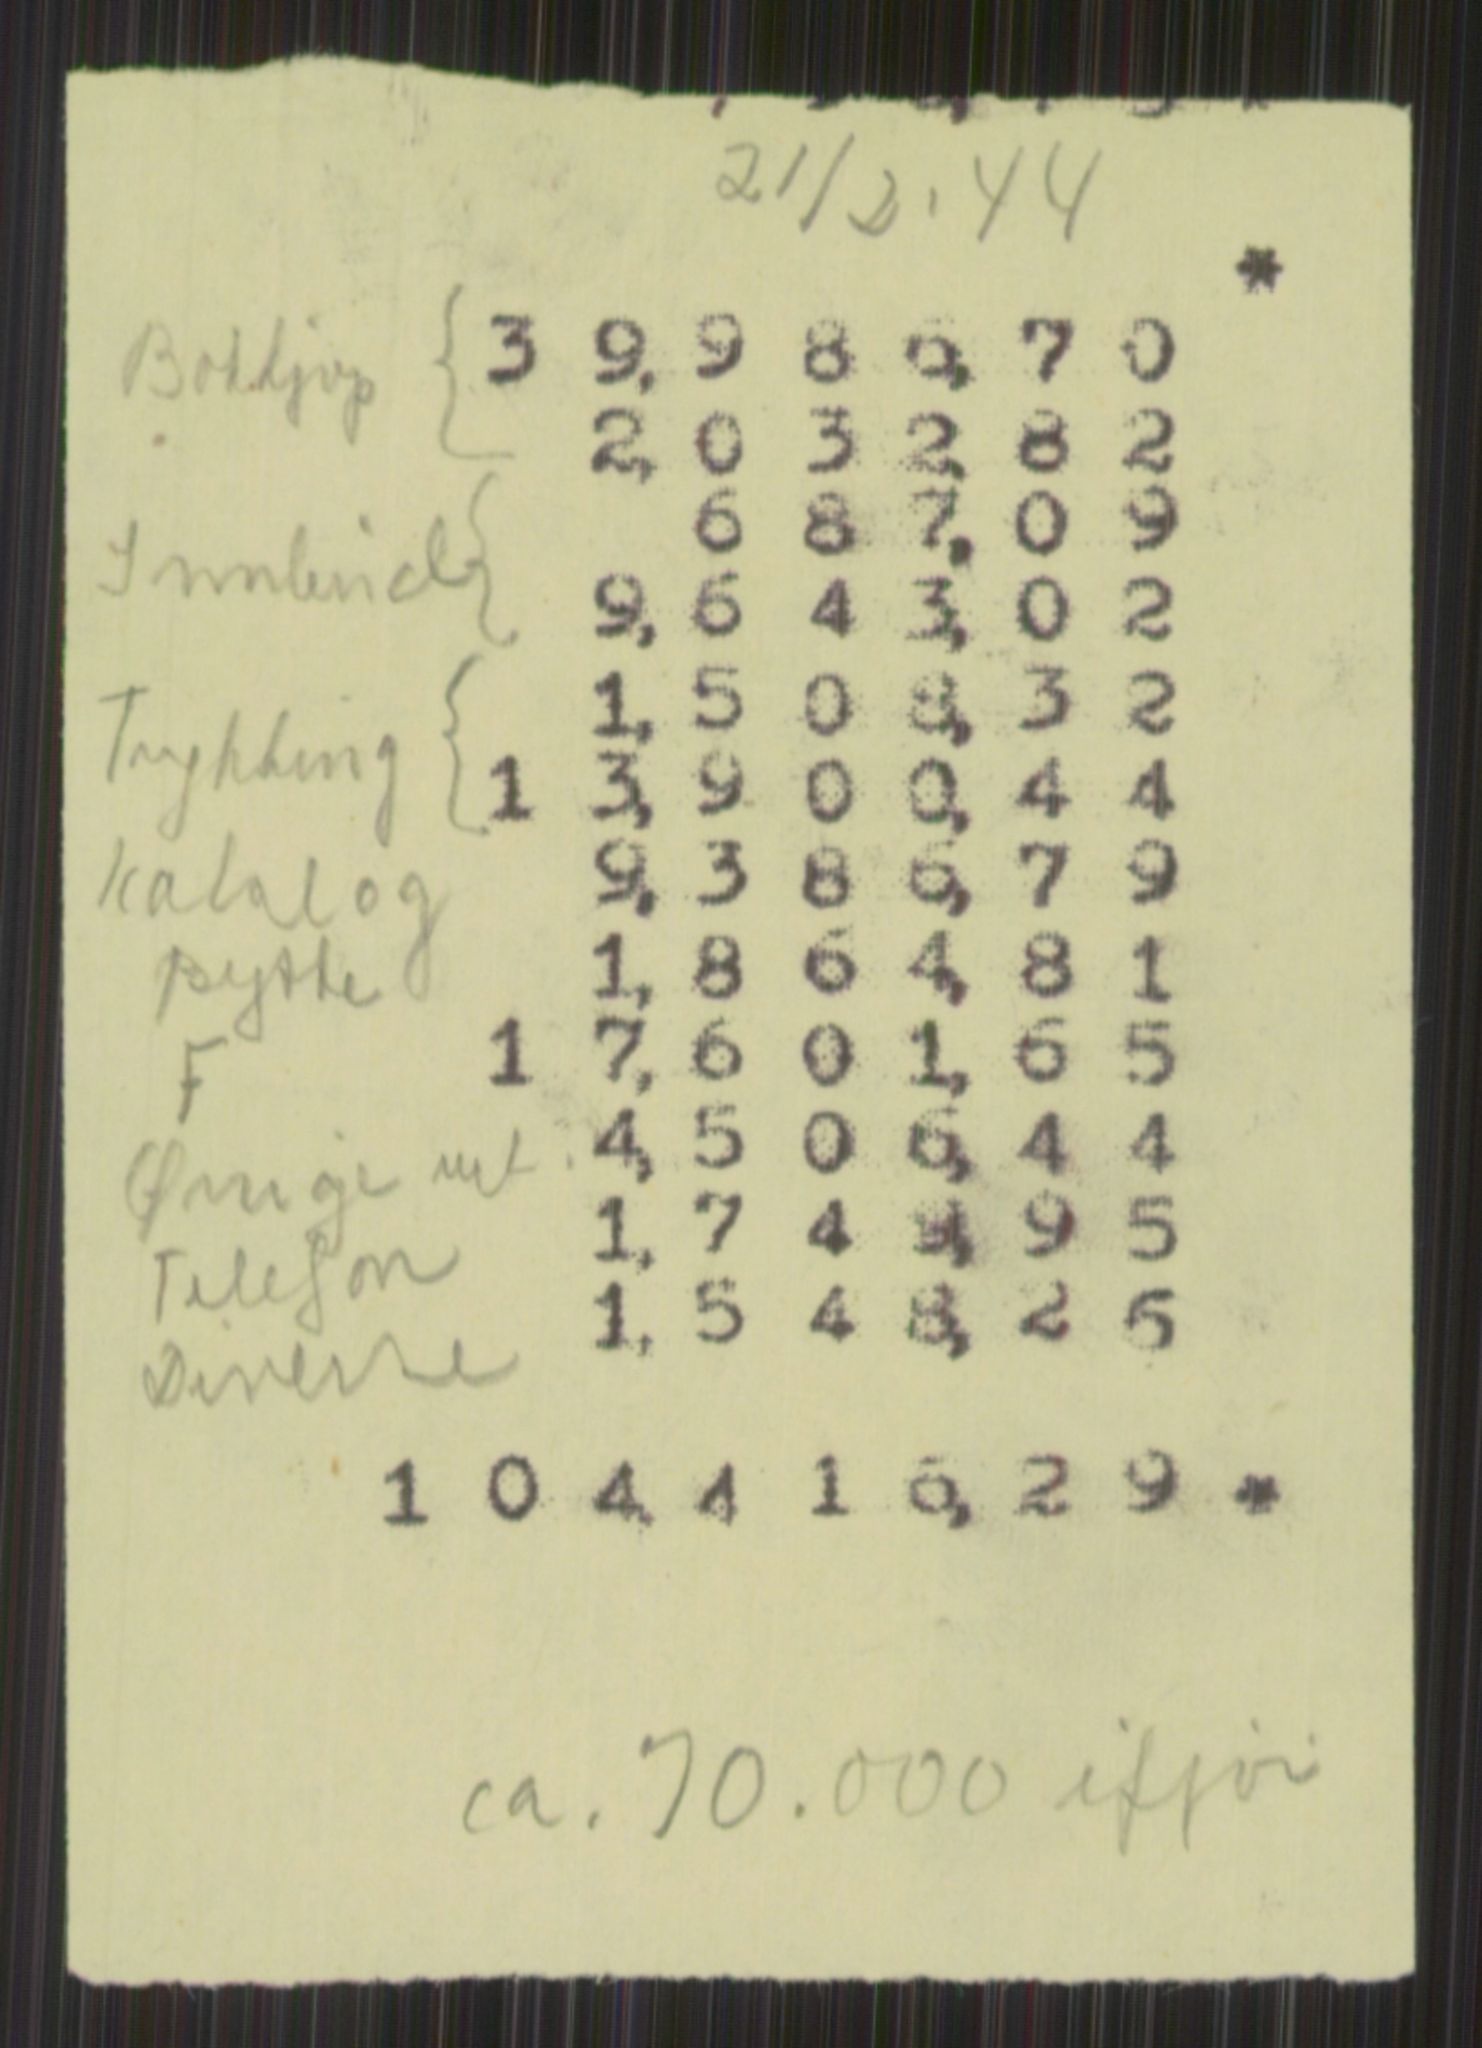 21/2.44
*
Bokkjøp { 39,986,70
2,032,82
Innbind { 687,09
9,643,02
Trykking { 1,508,32
13,900,44
Katalog 9,386,79
Bytte 1,864,81
F 17,601,65
Øvrige utl. 4,506,44
Telefon 1,749,95
Diverse 1,548,26
104,416,29 *
ca. 70.000 ifjor